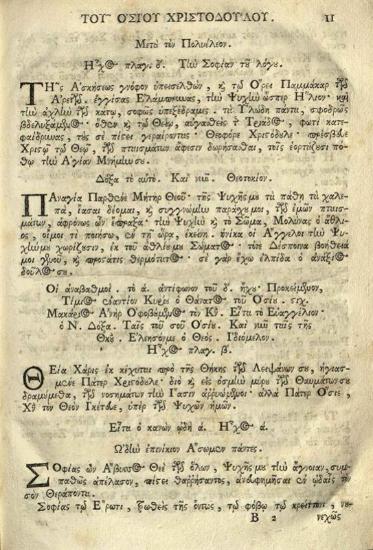 ΤΟΥ ΟΣΙΟΥ ΧΡΙΣΤΟΔΟΥΛΟΥ. 11
Μετὰ τὸν Πολυέλεον.
Ἦχος πλαγ. δ. Τὴν Σοφίαν τῦ λόγου.
ΤΗς Ἀσκήσεως γνόφον ὑπεισελθὼν, κ τῷ Ὄρει Παμμάκαρ τῶν
Ἀρετῶν ἐγγίσας ἐλάμπρυνας, τὴν Ψυχὴν ὥσπερ Ἥλιον· καὶ
τὴν ἀχλὺν τῶν κάτω, σοφῶς ὑπεξέδραμες. τὰ Γεώδη πάντα, σφοδρῶς
βδελυξάμενος· ὅθεν κ τῷ Θεῷ, αὐγασθεὶς φωτὶ κατε-
φαίδρυνας, τοὺς σε πίστει γεραίροντας· Θεοφόρε Χριστόδουλε· πρέσβευε
Χριστῷ τῷ Θεῷ, τῶν πταισμάτων ἄφεσιν δωρήσασθαι, τοῖς ἑορτάζουσι πό-
θῳ τὴν Ἁγίαν Μνήμην σου.
Δόξα τὸ αὐτό. Καὶ νῦν. Θεοτοκίον.
ΠΑναγία Παρθένε Μῆτερ Θεοῦ· τῆς Ψυχῆς με τὰ πάθη τὰ χαλε-
πὰ, ἴασαι δέομαι, κ συγγνώμην παράσχε μοι, τῶν ἐμῶν πταισ-
μάτων, ἀφρόνως ὧν ἔπραξα· τὴν Ψυχὴν κ τὸ Σῶμα, Μολύνας ὁ ἄθλι-
ος, οἴμοι τί ποιήσω, ἐν τῇ ὥρᾳ, ἐκείνῃ ἡνίκα οἱ Ἄγγελοι τὴν Ψυ-
χήν με χωρίζουσιν, ἐκ τοῦ ἀθλίου με Σώματος· τότε Δέσποινα βοήθειά
μοι γενοῦ, κ προστάτις θερμοτάτη· σὲ γὰρ ἔχω ἐλπίδα ὁ ἀνάξιος
δοῦλός σου.
Οἱ ἀναβαθμοὶ. τὸ α. ἀντίφωνον τοῦ δ. ἤχου· Προκείμενον,
Τίμιος ἐναντίον Κυρίου ὁ Θάνατος τοῦ Ὁσίου. στιχ.
Μακάριος Ἀνὴρ ὁ φοβούμενος τὸν Κν. Εἶτα τὸ Εὐαγγέλιον·
ὁ Ν. Δόξα. Ταῖς τοῦ σοῦ Ὁσίου. Καὶ νῦν ταῖς τῆς
Θκου. Ἐλέησόν με ὁ Θεός. Ἰδιόμελον.
Ἦχος πλαγ. β.
ΘΕία Χάρις ἐκκέχυται ἀπὸ τῆς Θήκης τῶν Λειψάνων σου, ἡγιασ-
μένε Πάτερ Χριστόδουλε· διὸ κ εἰς ὀσμὴν μύρου τῶν Θαυμάτων σου
δραμούμεθα, τῶν νοσημάτων τὴν Ἴασιν ἀρυόμενοι· ἀλλὰ Πάτερ Ὅσιε,
Χν τὸν Θεὸν ἱκέτευε, ὑπὲρ τῶν Ψυχῶν ἡμῶν.
Εἶτα ὁ κανὼν ᾠδὴ ά. Ἦχος ά.
ᾨδὴν ἐπινίκιον ᾄσωμεν πάντες.
ΣΟφίας ὢν Ἄβυσσος Θεὲ τῶν ὅλων, Ψυχῆς με τὴν ἄγνοιαν, συμ-
παθῶς ἀπέλασον, πίστει θαρρήσαντος, ἀνυφημῆσαι ἐν ᾠδαῖς τὸν
σὸν Θεράποντα.
Σοφίας τῷ Ἔρωτι, τρωθεὶς τῆς ὄντως, τῷ φόβῳ τῷ κρείττονι, νο-
Β 2 νεχῶς